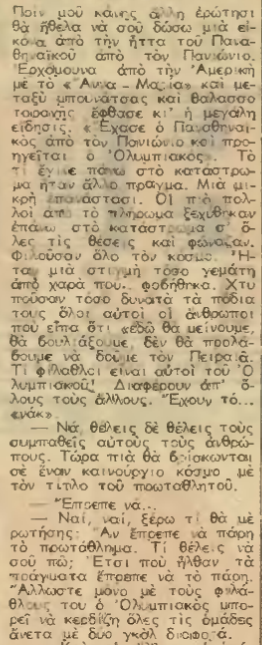 Πρὶν μοῦ κάνῃς ἄλλη ἐρώτησι
θὰ ἤθελα νὰ σοῦ δώσω μιὰ εἰ-
κόνα ἀπὸ τὴν ἧττα τοῦ Πανα-
θηναϊκοῦ ἀπὸ τὸν Πανιώνιο.
Ἐρχόμουνα ἀπὸ τὴν Ἀμερικὴ
μὲ τὸ «Ἄννα - Μαρία» καὶ με-
ταξὺ μπουνάτσας καὶ θαλασσο
ταραχῆς ἔφθασε κι' ἡ μεγάλη
εἴδησις. «Ἔχασε ὁ Παναθηναϊ-
κὸς ἀπὸ τὸν Πανιώνιο καὶ προ-
ηγεῖται ὁ Ὀλυμπιακός». Τὸ
τί ἔγινε πάνω στὸ κατάστρω-
μα ἦταν ἄλλο πρᾶγμα. Μιὰ μι-
κρὴ ἐπανάστασι. Οἱ πιὸ πολ-
λοὶ ἀπὸ τὸ πλήρωμα ξεχύθηκαν
ἐπάνω στὸ κατάστρωμα σ' ὅ-
λες τὶς θέσεις καὶ φώναζαν.
Φιλοῦσαν ὅλο τὸν κόσμο. Ἦ-
ταν μιὰ στιγμὴ τόσο γεμάτη
ἀπὸ χαρὰ που.. φοβήθηκα. Χτυ
ποῦσαν τόσο δυνατὰ τὰ πόδια
τους ὅλοι αὐτοὶ οἱ ἄνθρωποι
ποὺ εἶπα ὅτι «ἐδῶ θὰ μείνουμε,
θὰ βουλιάξουμε, δὲν θὰ προλά-
βουμε νὰ δοῦμε τὸν Πειραιᾶ.
Τί φίλαθλοι εἶναι αὐτοὶ τοῦ Ὀ
λυμπιακοῦ! Διαφέρουν ἀπ' ὅ-
λους τοὺς ἄλλους. Ἔχουν τό...
«νάκ».
— Νά, θέλεις δὲ θέλεις τοὺς
συμπαθεῖς αὐτοὺς τοὺς ἀνθρώ-
πους. Τώρα πιὰ θὰ βρίσκωνται
σὲ ἕναν καινούργιο κόσμο μὲ
τὸν τίτλο τοῦ πρωταθλητοῦ.
— Ἔπρεπε νά...
— Ναί, ναί, ξέρω τί θὰ μὲ
ρωτήσῃς: Ἂν ἔπρεπε νὰ πάρη
τὸ πρωτάθλημα. Τί θέλεις νὰ
σοῦ πῶ; Ἔτσι ποὺ ἦλθαν τὰ
πράγματα ἔπρεπε νὰ τὸ πάρη.
Ἄλλωστε μόνο μὲ τοὺς φιλά-
θλους του ὁ Ὀλυμπιακὸς μπο-
ρεῖ νὰ κερδίζη ὅλες τὶς ὁμάδες
ἄνετα μὲ δυὸ γκὸλ διαφορά.